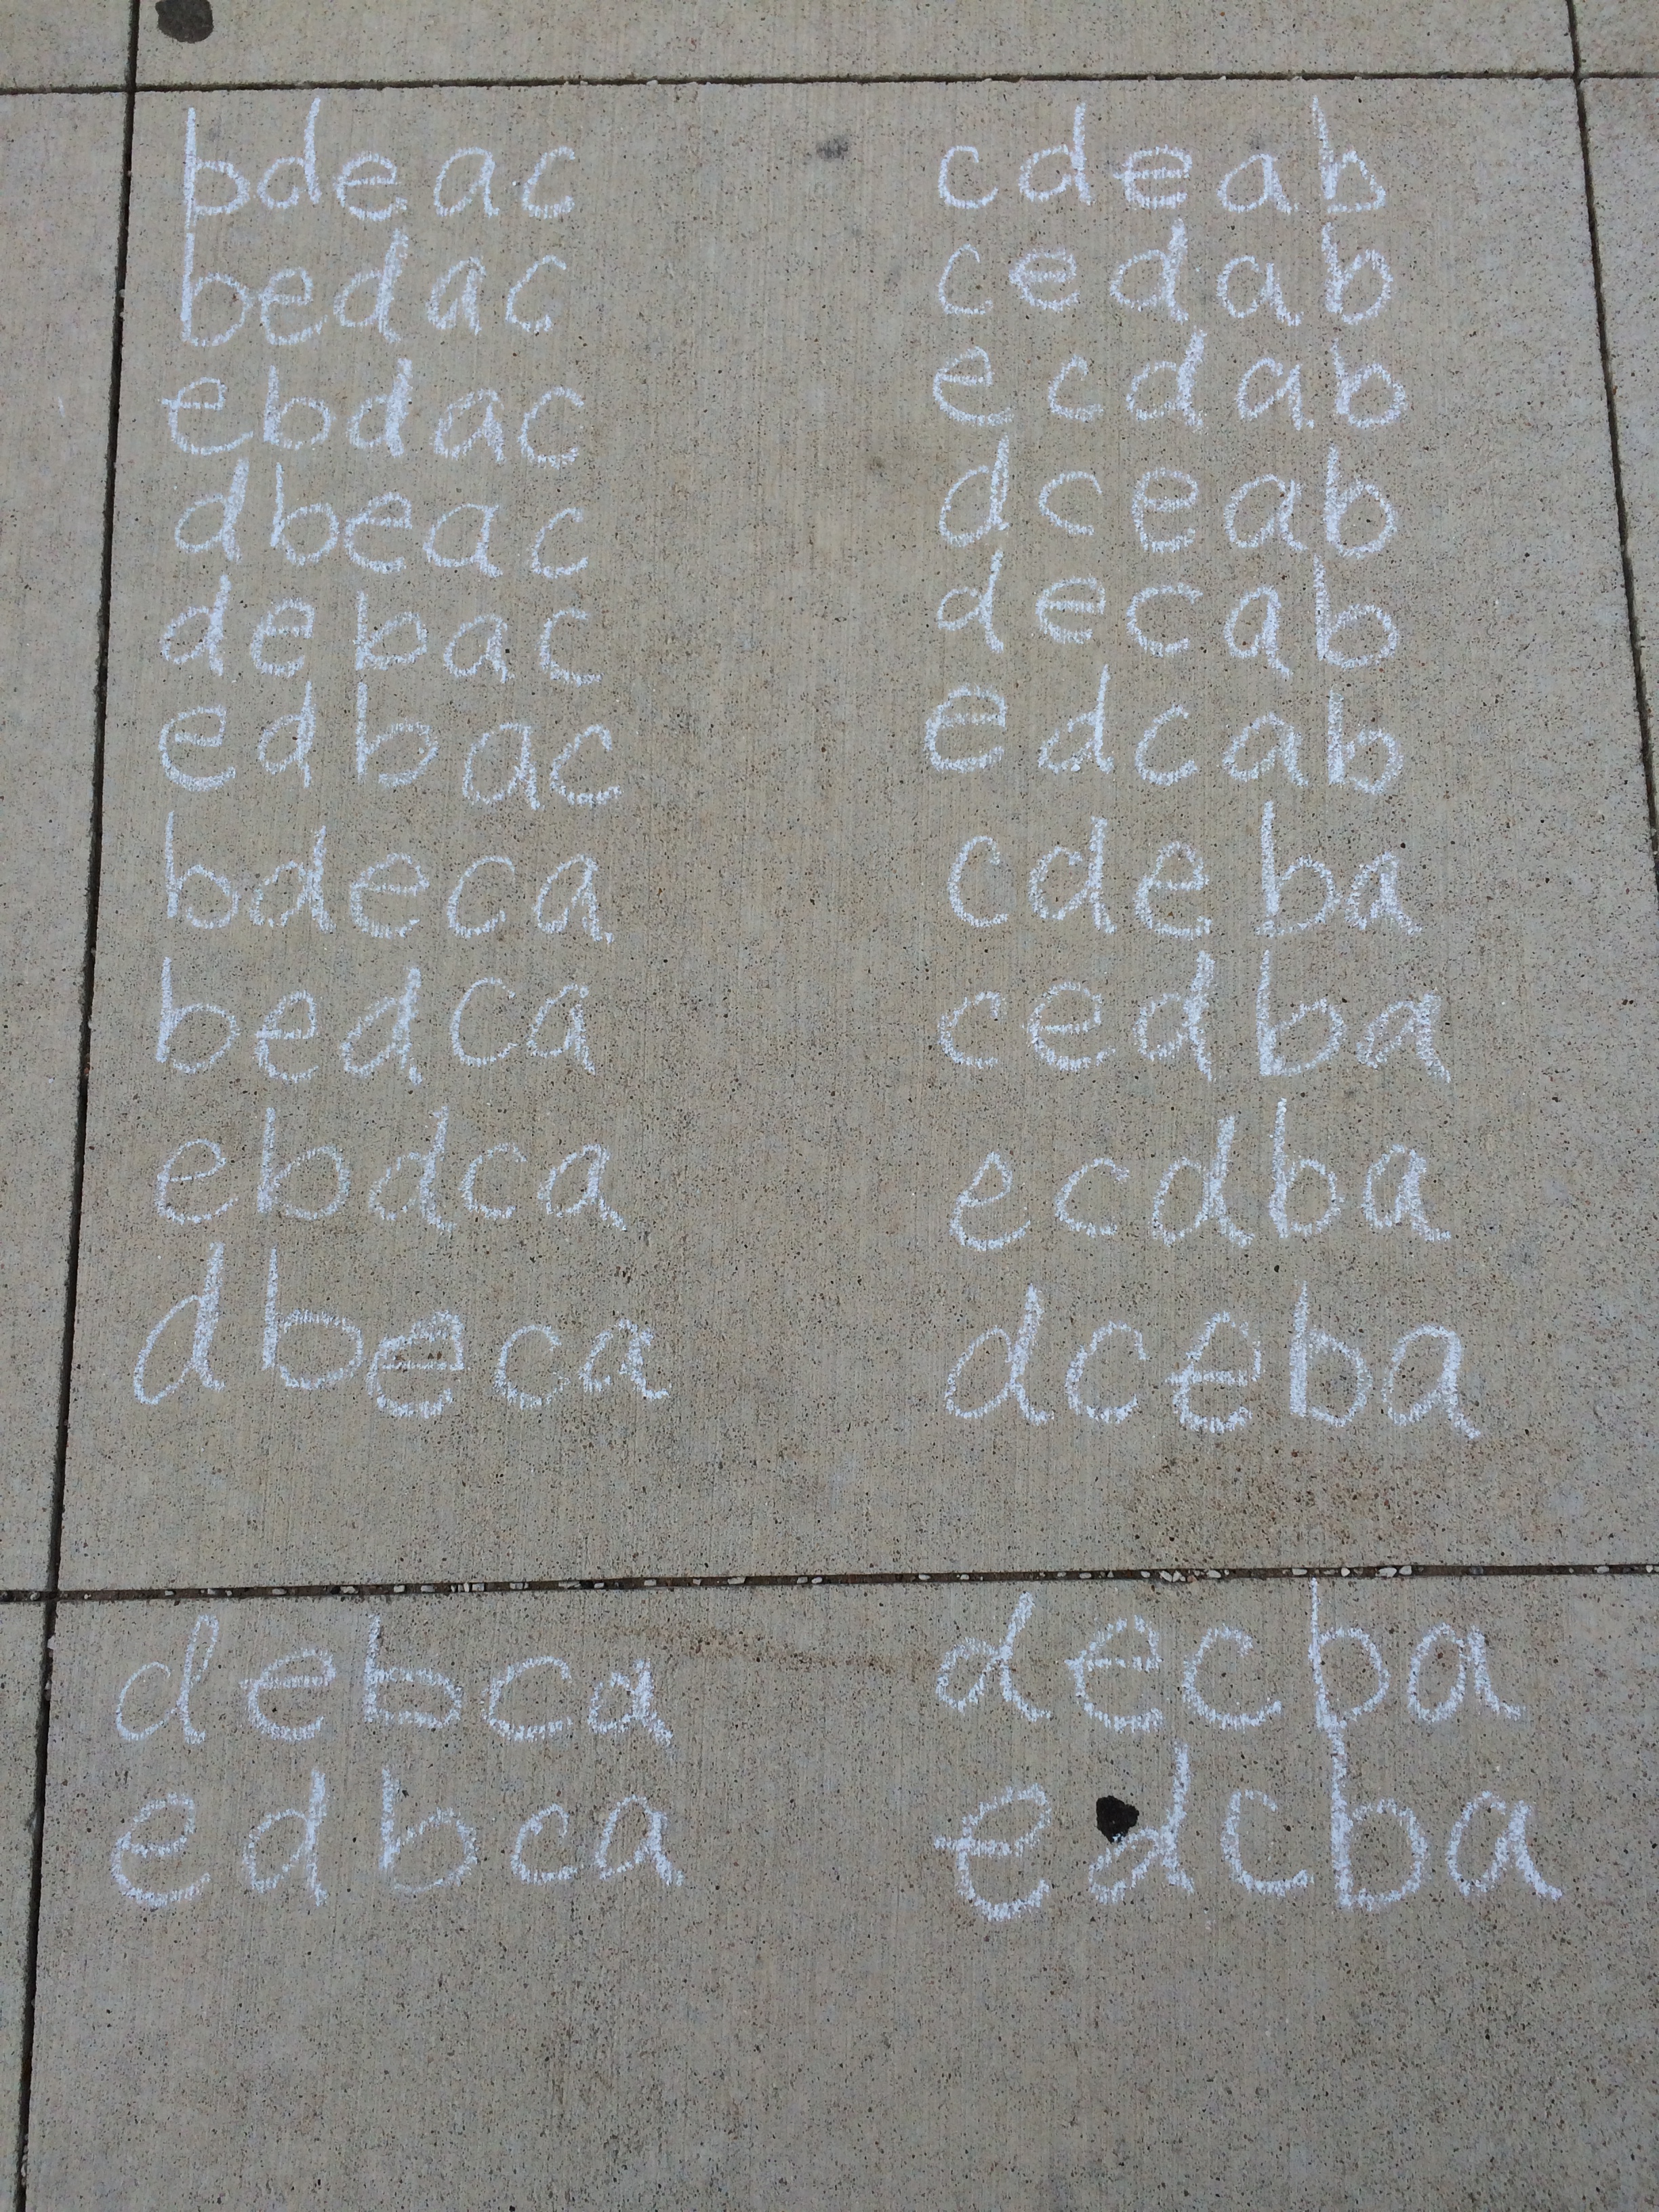 bdeac cdeab
bedac cedab
ebdac ecdab
dbeac dceab
debac decab
edbac edcab
bdeca cdeba
bedca cedba
ebdca ecdba
dbeca dceba
debca decba
edbca edcba